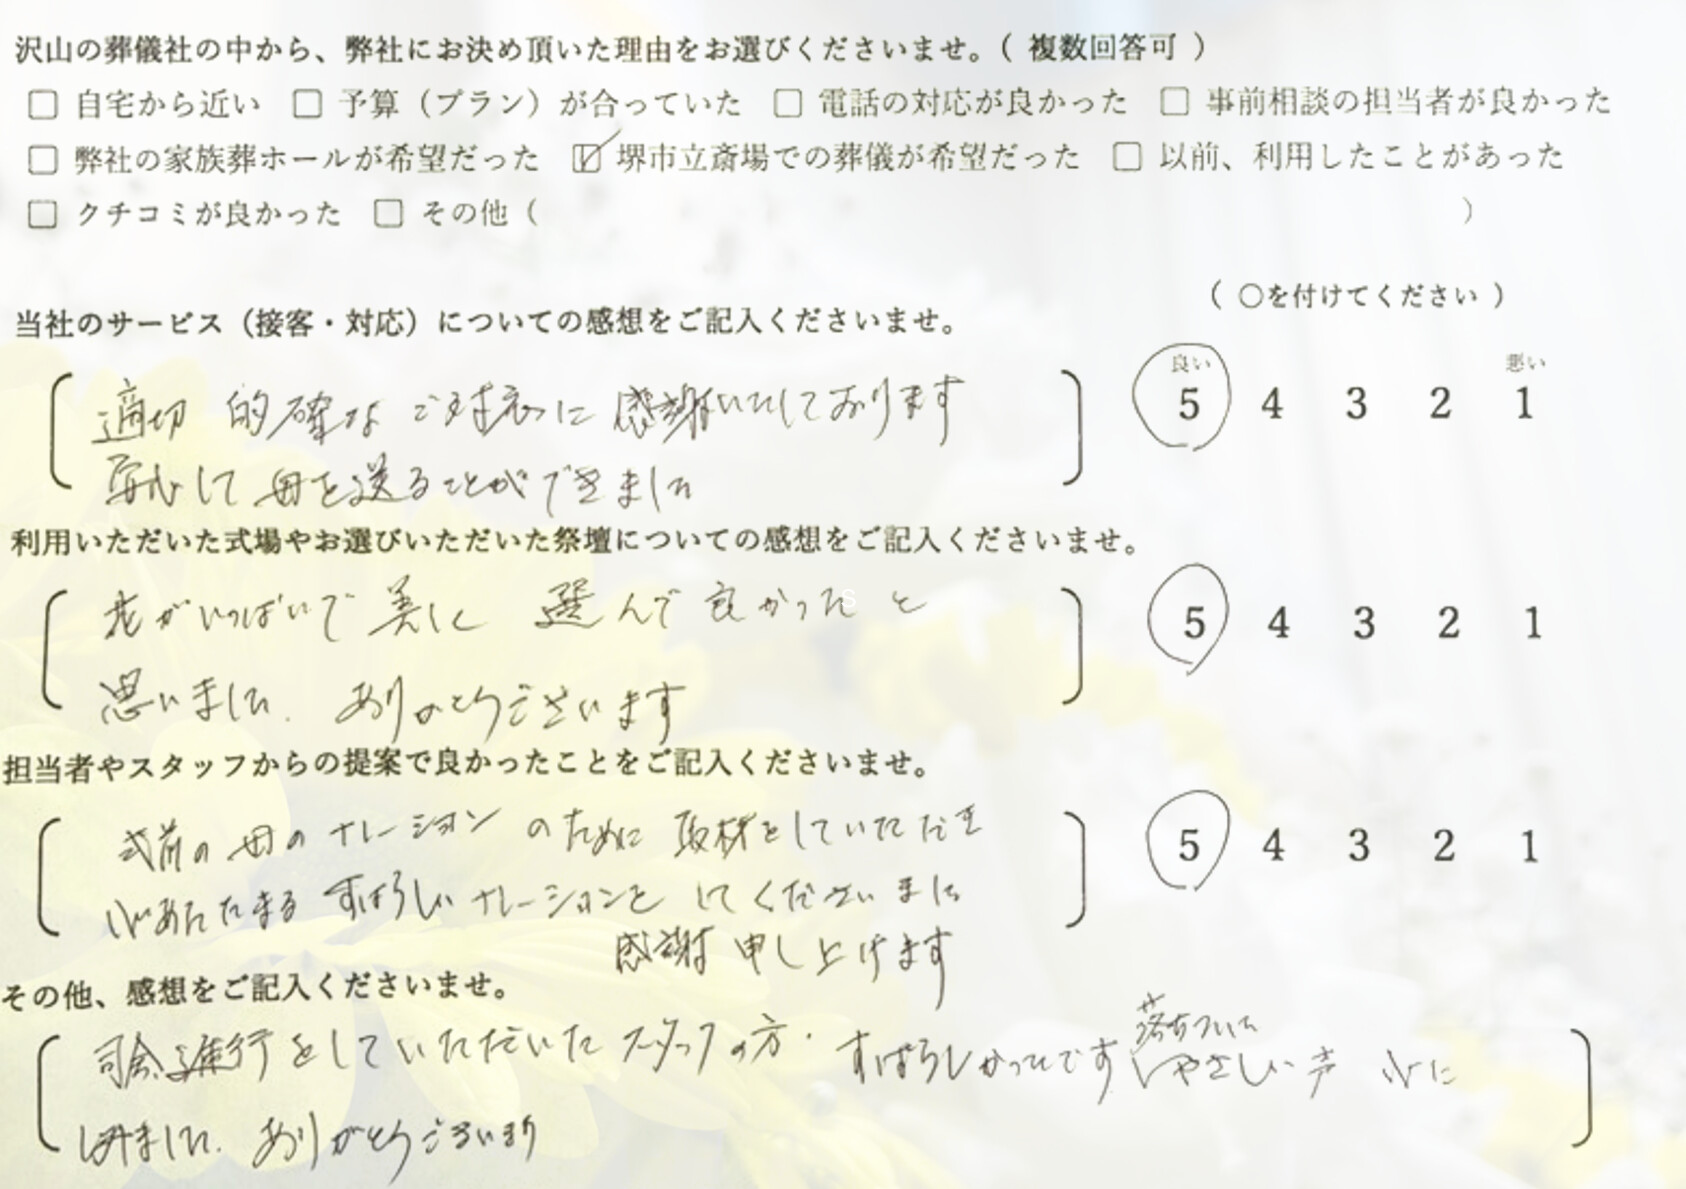 沢山の葬儀社の中から、弊社にお決め頂いた理由をお選びくださいませ。( 複数回答可 )
□ 自宅から近い □ 予算（プラン）が合っていた □ 電話の対応が良かった □ 事前相談の担当者が良かった
□ 弊社の家族葬ホールが希望だった ☑ 堺市立斎場での葬儀が希望だった □ 以前、利用したことがあった
□ クチコミが良かった □ その他（ ）
（ ○を付けてください ）
当社のサービス（接客・対応）についての感想をご記入くださいませ。
良い 悪い
適切 的確な ご対応に 感謝いたしております
5 4 3 2 1
安心して 母を送ることができました
利用いただいた式場やお選びいただいた祭壇についての感想をご記入くださいませ。
花がいっぱいで 美しく 選んで 良かった と
5 4 3 2 1
思いました. ありがとうございます
担当者やスタッフからの提案で良かったことをご記入くださいませ。
式前の 母の ナレーション のために 取材をしていただき
5 4 3 2 1
心あたたまる すばらしい ナレーションを してくださいました
感謝 申し上げます
その他、感想をご記入くださいませ。
司会進行をしていただいた スタッフの方. すばらしかったです 落ちついた やさしい 声 心に
しみました. ありがとうございます